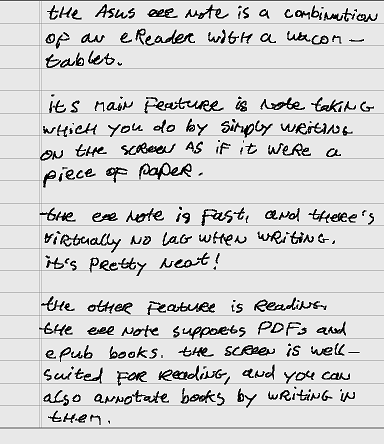 the Asus eee Note is a combination
of an eReader with a wacom-
tablet.
it's main feature is note taking
which you do by simply writing
on the screen as if it were a
piece of paper.
the eee Note is fast, and there's
virtually no lag when writing.
it's pretty neat!
the other feature is reading.
the eee Note supports PDFs and
ePub books. the screen is well-
suited for reading, and you can
also annotate books by writing in
them.